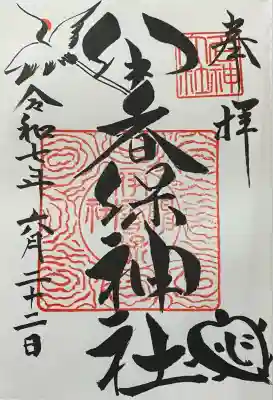 奉拝
春保神社
令和七年 六月二十二日
心